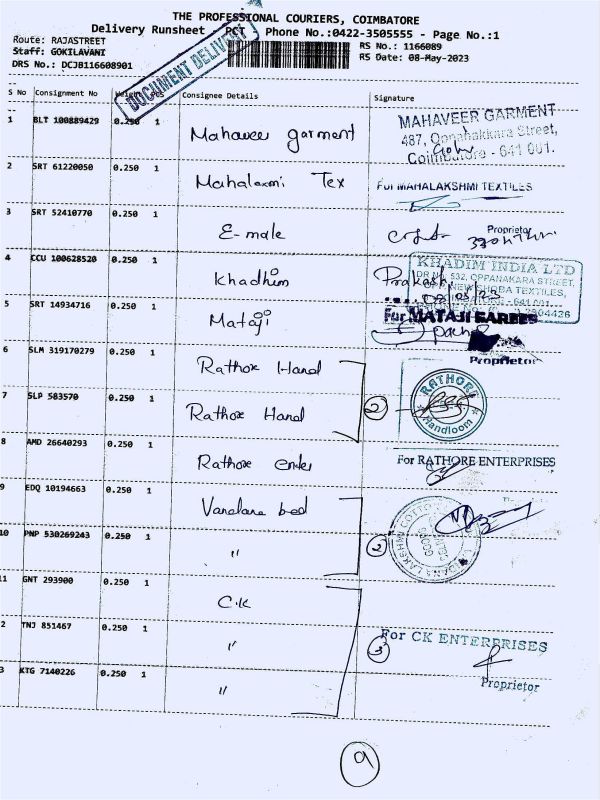 THE PROFESSIONAL COURIERS, COIMBATORE
Delivery Runsheet - PCT Phone No.:0422-3505555 - Page No.:1
Route: RAJASTREET
RS No.: 1166089
Staff: GOKILAVANI
RS Date: 08-May-2023
DRS No.: DCJB116608901
DOCUMENT DELIVERY
S No Consignment No Weight Pcs Consignee Details Signature
1 BLT 100889429 0.250 1 Mahaveer garment
MAHAVEER GARMENT
487, Oppanakkara Street,
Coimbatore - 641 001.
2 SRT 61220050 0.250 1 Mahalaxmi Tex
For MAHALAKSHMI TEXTILES
Proprietor
3 SRT 52410770 0.250 1 E-male
4 CCU 100628520 0.250 1 Khadhim
KHADIM INDIA LTD
DR NO. 532, OPPANAKARA STREET,
NEW SHOBA TEXTILES,
- 641 001.
Prakash
08/05/23
5 SRT 14934716 0.250 1 Mataji
For MATAJI SAREES
Proprietor
6 SLM 319170279 0.250 1 Rathore Hand
7 SLP 583570 0.250 1 Rathore Hand
2
RATHORE
Handloom
8 AMD 26640293 0.250 1 Rathore enter
For RATHORE ENTERPRISES
9 EDQ 10194663 0.250 1 Vandana bed
10 PNP 530269243 0.250 1 "
2
11 GNT 293900 0.250 1 C.K
2 TNJ 851467 0.250 1 "
For CK ENTERPRISES
3
Proprietor
3 KTG 7140226 0.250 1 "
9